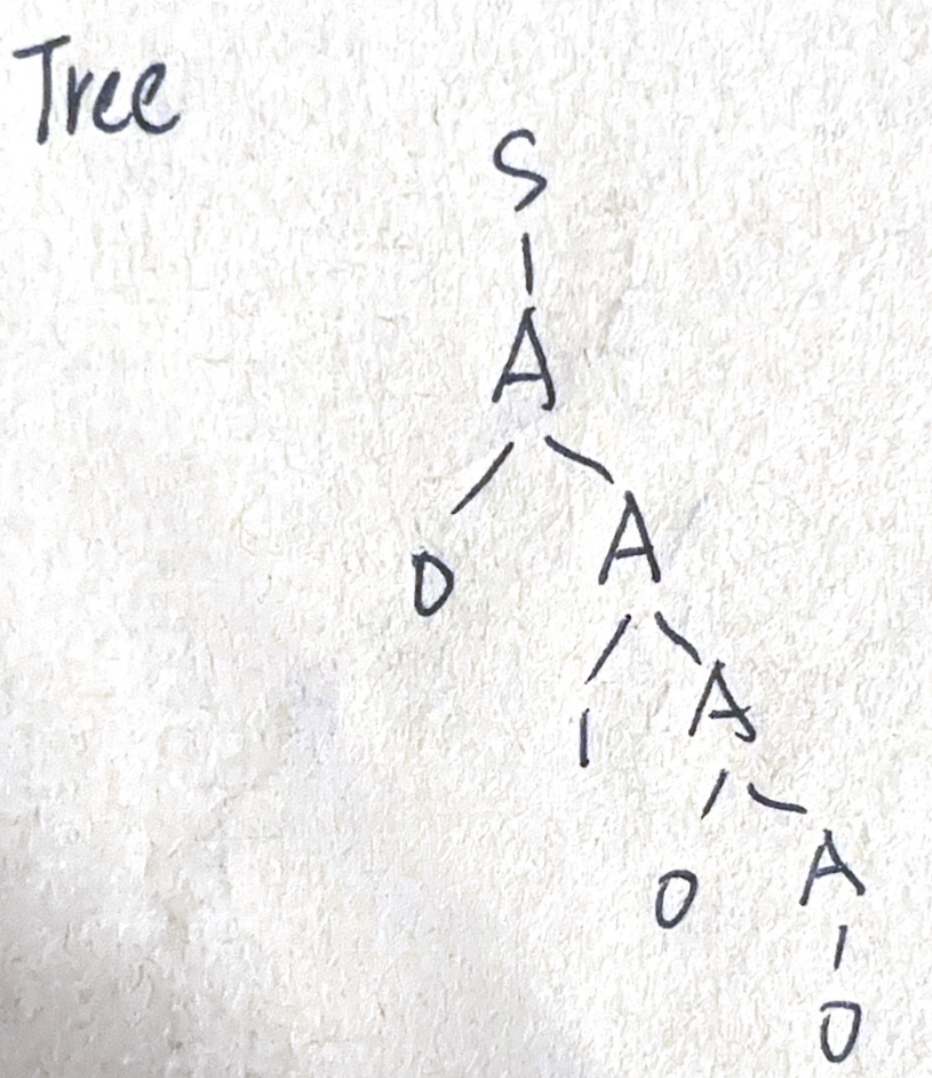 Tree
S
A
0 A
1 A
0 A
0